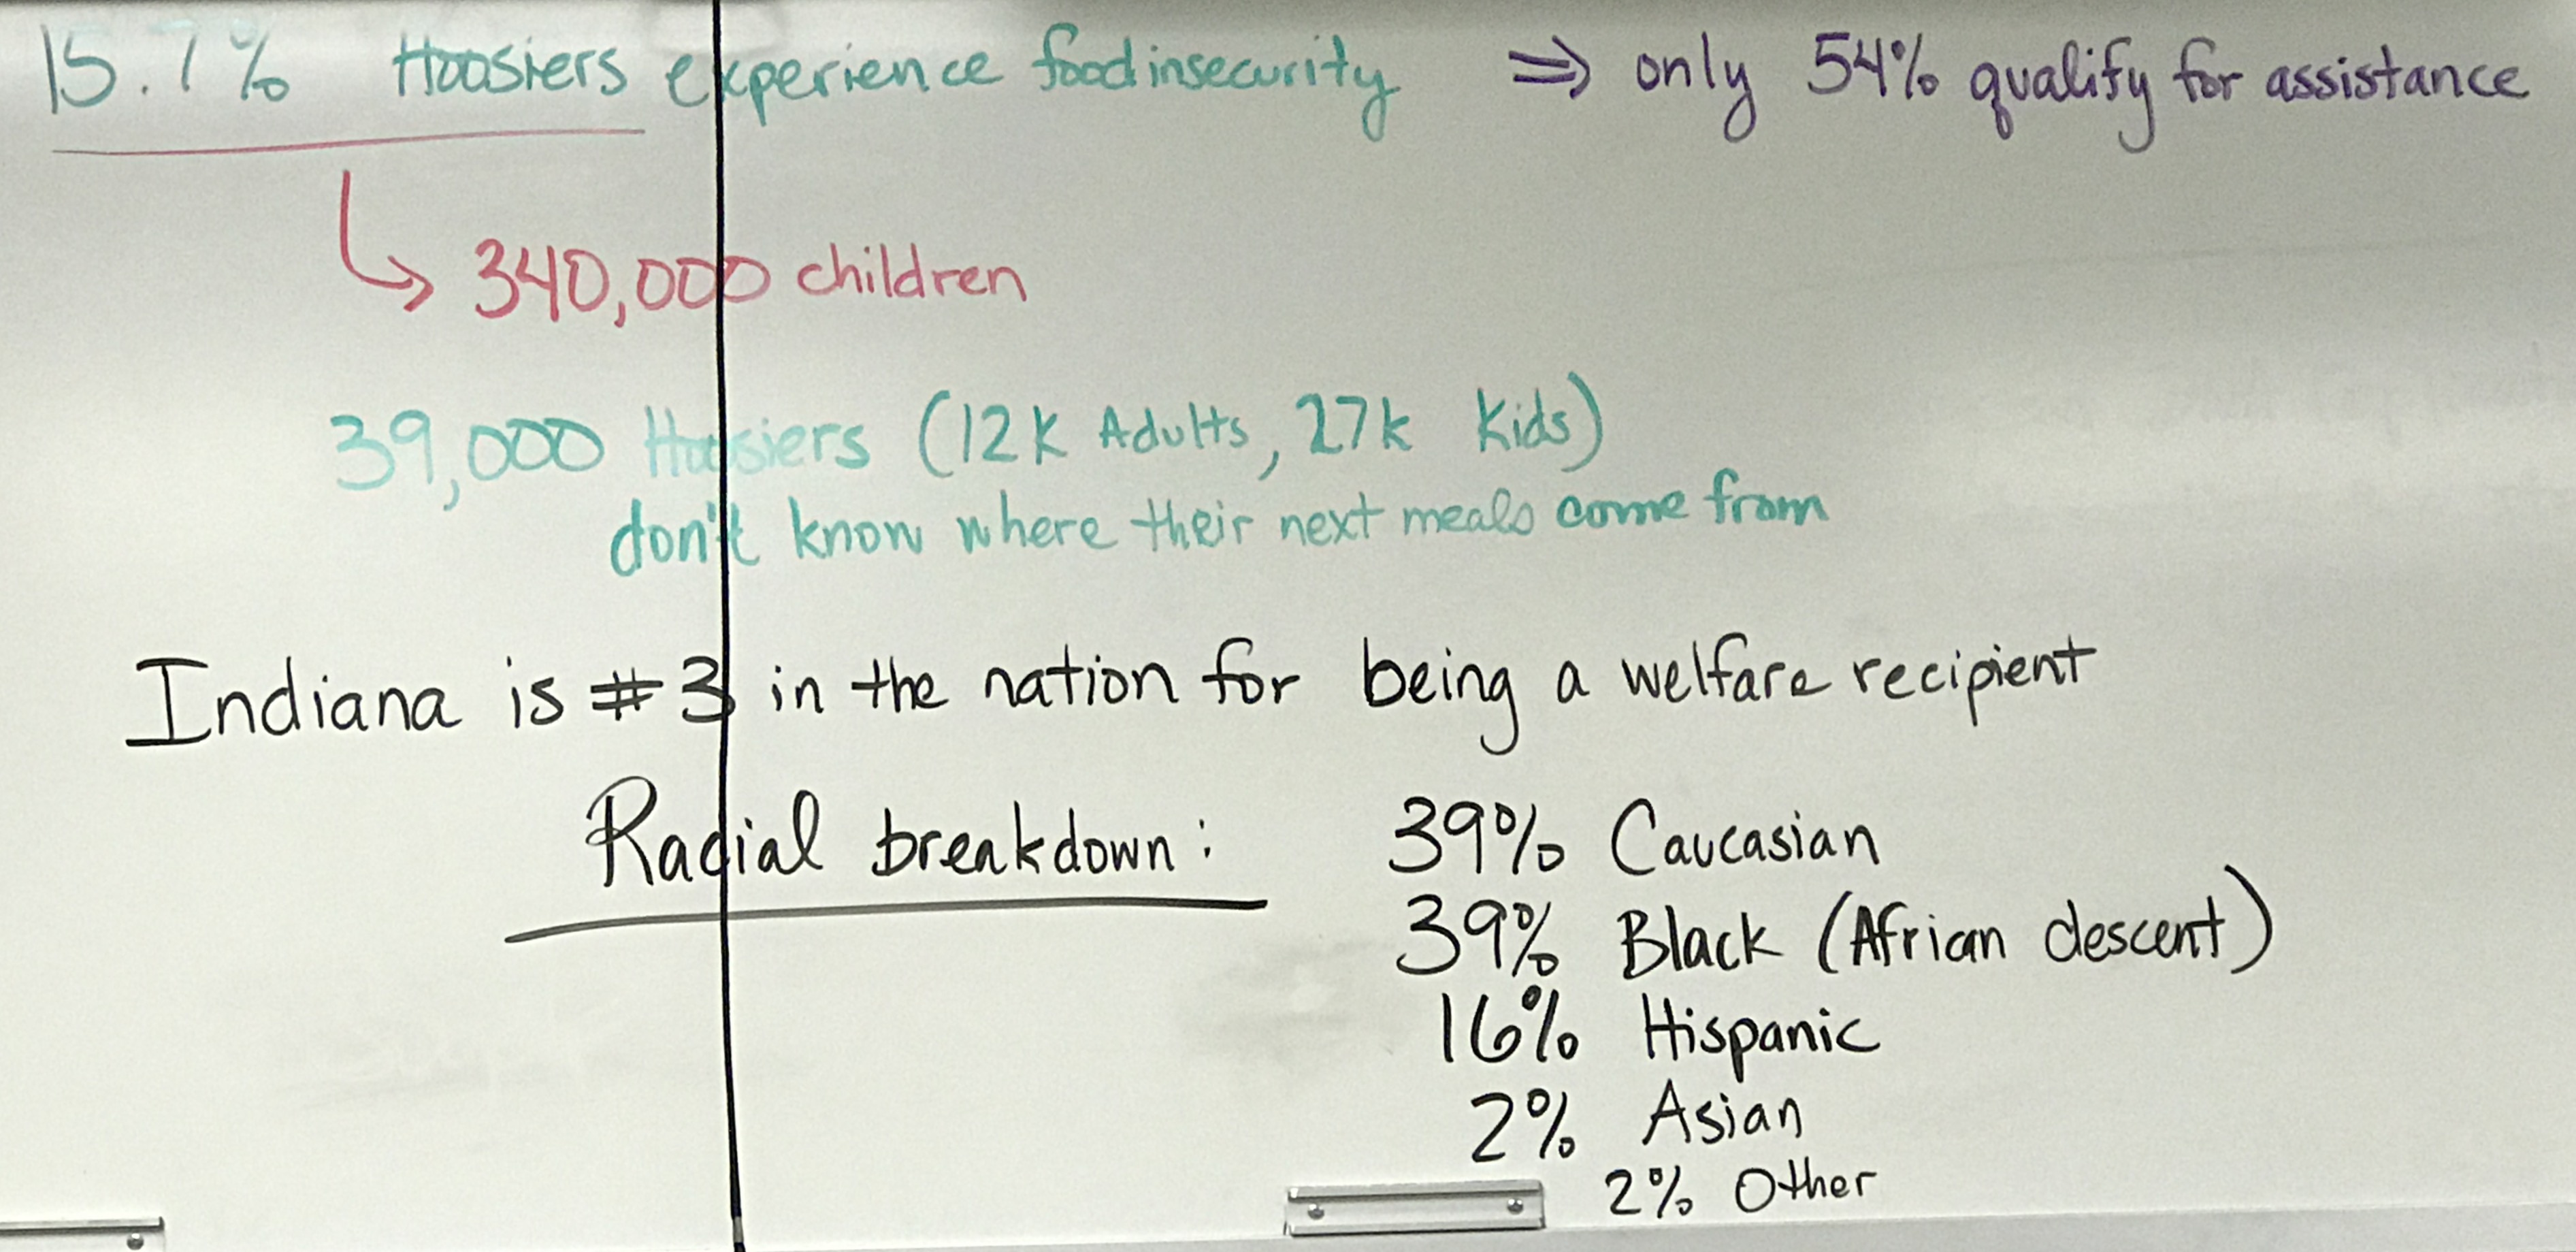 15.7% Hoosiers experience food insecurity ⇒ only 54% qualify for assistance
↳ 340,000 children
39,000 Hoosiers (12K Adults, 27k Kids)
don't know where their next meals come from
Indiana is #3 in the nation for being a welfare recipient
Racial breakdown: 39% Caucasian
39% Black (Afrian descent)
16% Hispanic
2% Asian
2% Other